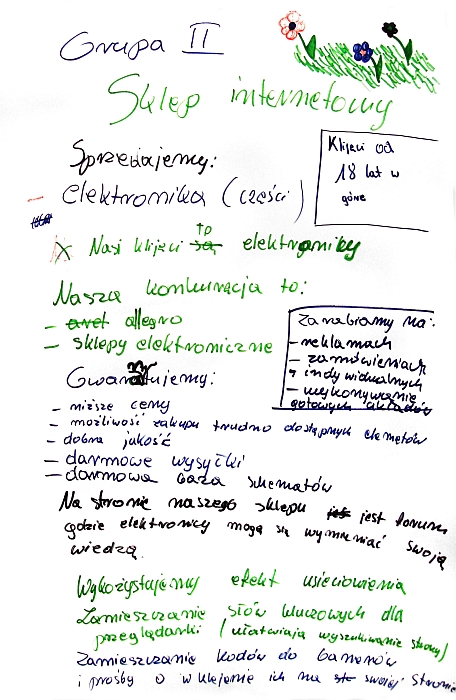 Grupa II
Sklep internetowy
Sprzedajemy:
elektronika (części)
Klijeci od
18 lat w
góre
Nasi klijeci to elektroniky
Naszą konkuracja to:
- allegro
- sklepy elektroniczne
Zarabiamy na:
- reklamach
- zamówieniach
indywidualnych
- wykonywanie
gotowych układów
Gwarantujemy:
- niższe ceny
- możliwość zakupu trudno dostępnych elemętów
- dobra jakość
- darmowe wysyłki
- darmowa baza schematów
Na stronie naszego sklepu jest forum
gdzie elektronicy mogą się wymieniać swoją
wiedzą.
Wykozystajemy efekt usieciowienia
Zamieszczanie słów kluczowych dla
przeglądarki (ułatwiają wyszukiwanie strony)
Zamieszczanie kodów do banerów
i prośby o wklejenie ich na swojej stronie